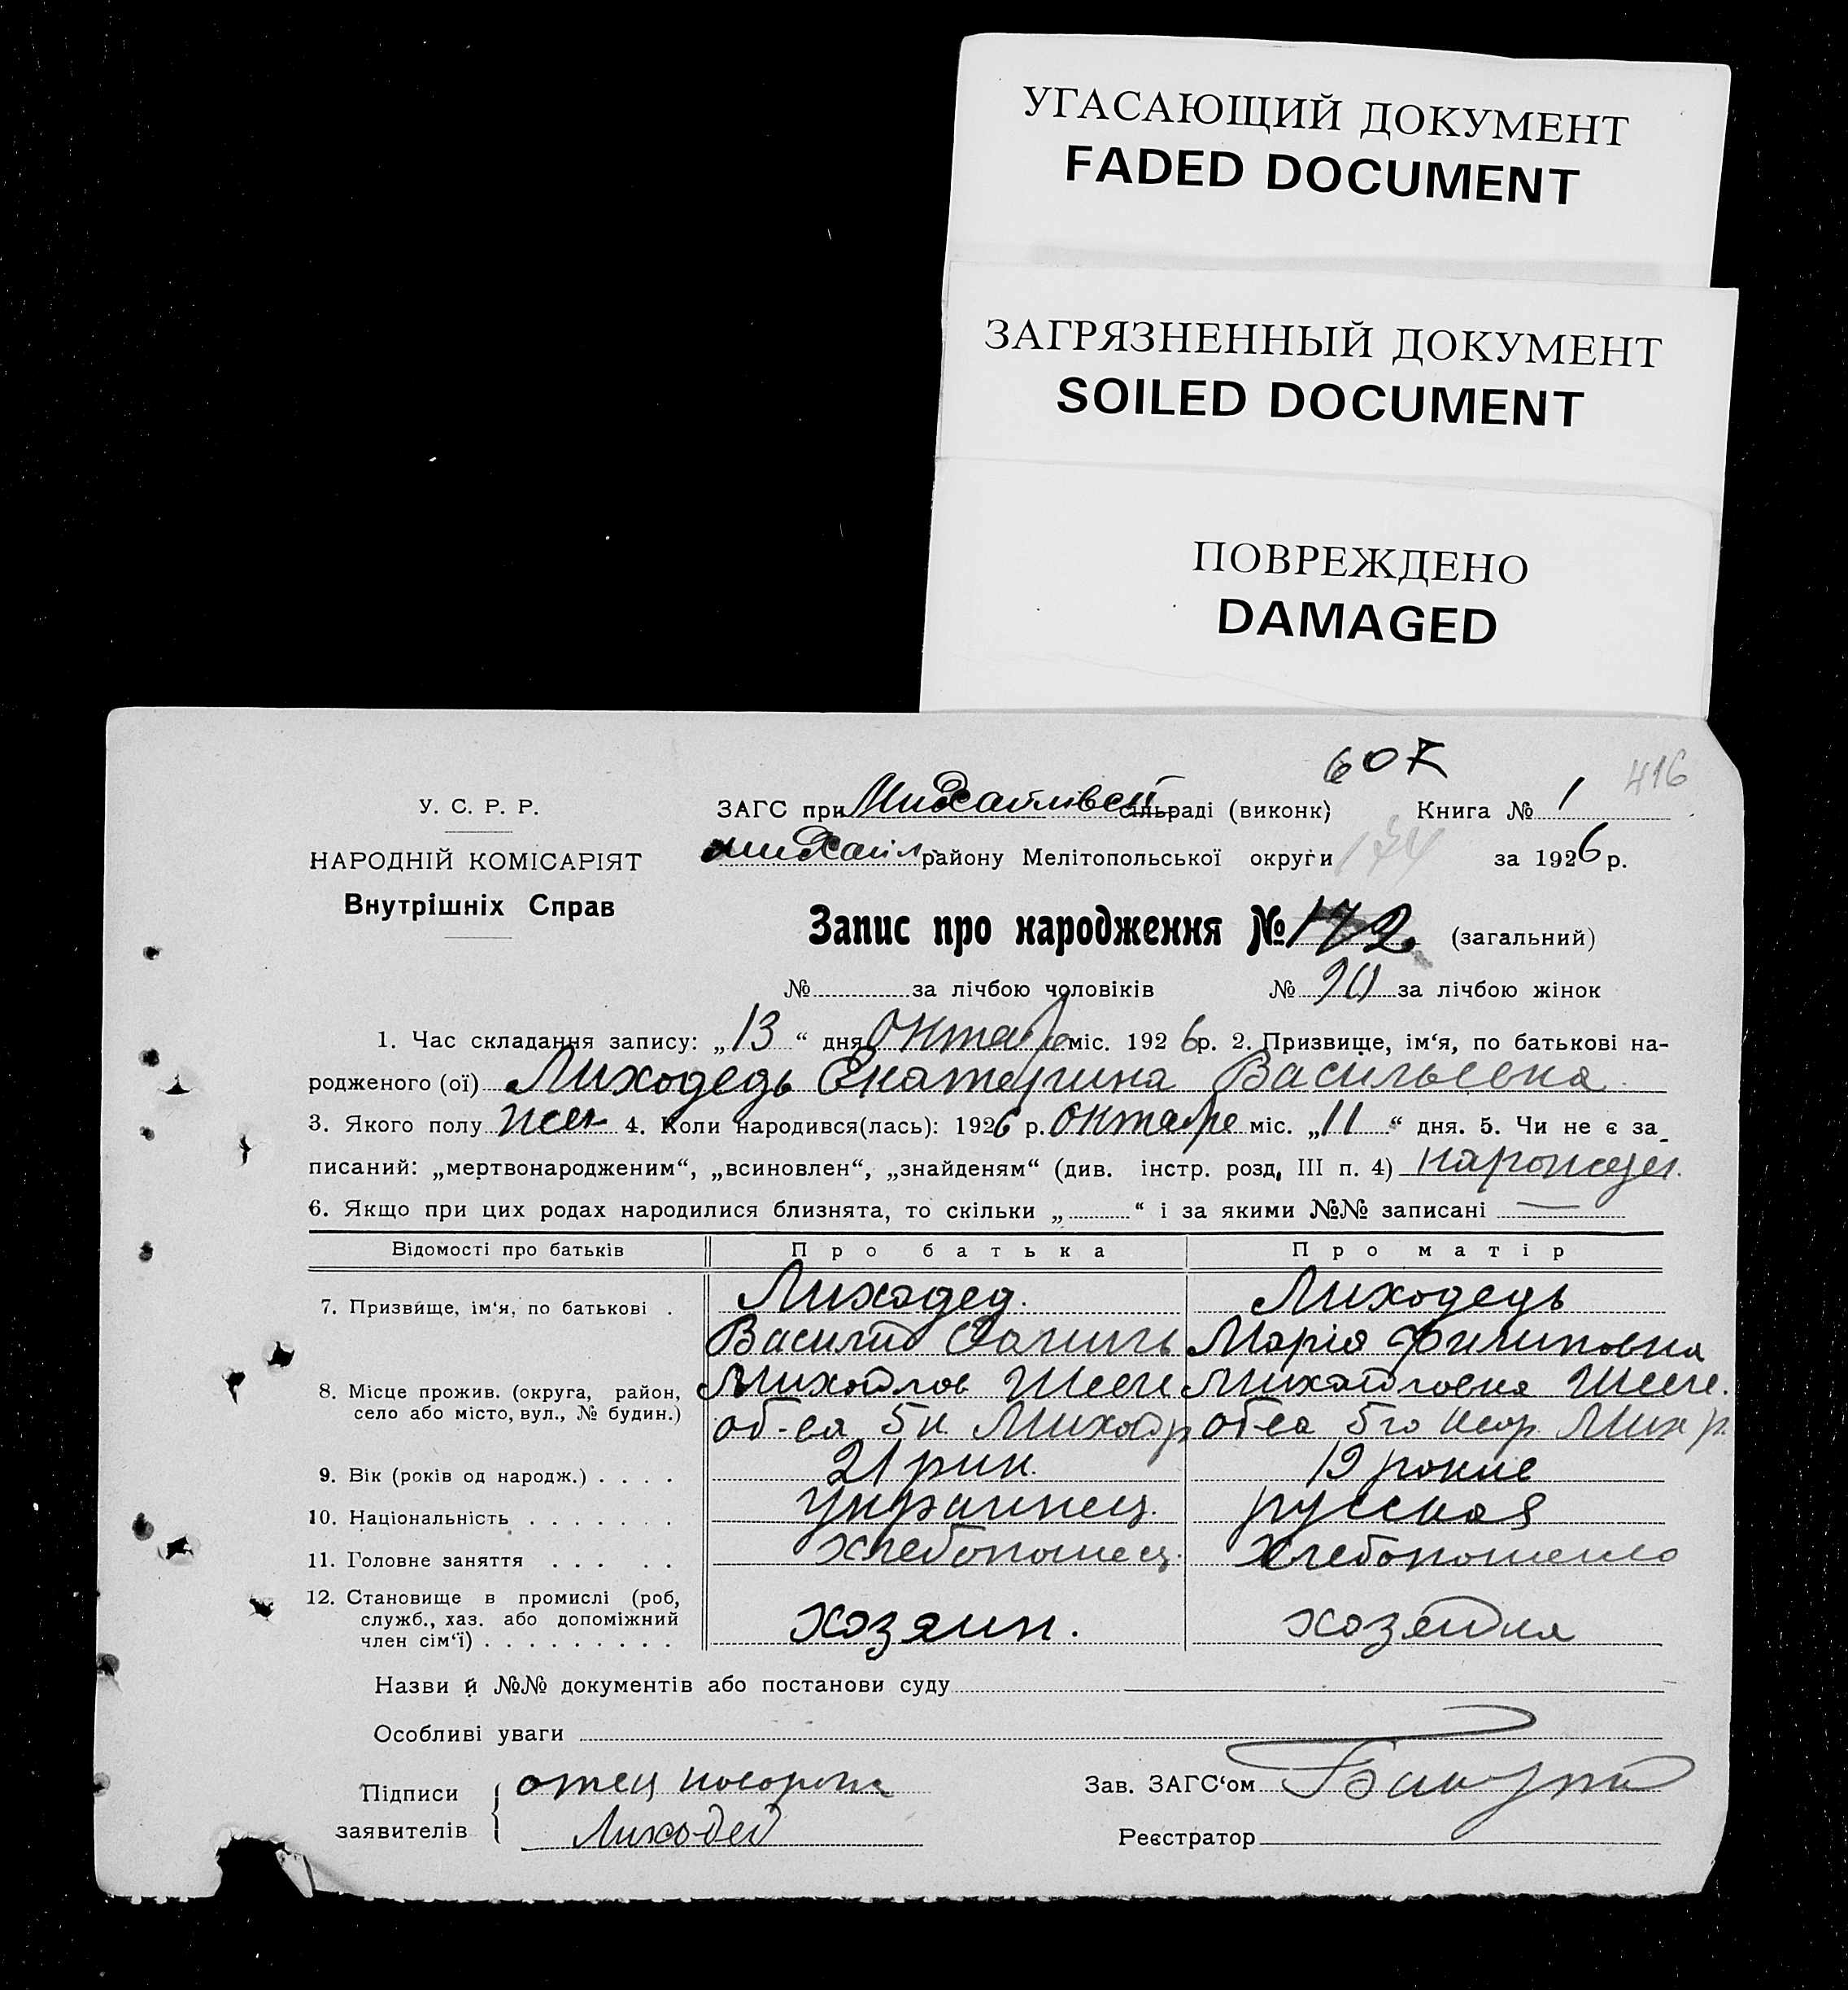 УГАСАЮЩИЙ ДОКУМЕНТ
FADED DOCUMENT
ЗАГРЯЗНЕННЫЙ ДОКУМЕНТ
SOILED DOCUMENT
ПОВРЕЖДЕНО
DAMAGED
416
У. С. Р. Р.
ЗАГС при Михайлівсй сільраді (виконк) Книга № 1
НАРОДНІЙ КОМІСАРІЯТ
Михайл району Мелітопольської округи 174 за 1926 р.
Внутрішніх Справ
Запис про народження № 172 (загальний)
№ за лічбою чоловіків № за лічбою жінок
1. Час складання запису: „13“ дня октабре міс. 1926 р. 2. Призвище, ім‘я, по батькові на-
родженого (ої) Лиходедь Екатерина Васильевна
3. Якого полу жен 4. Коли народився(лась): 1926 р. октабре міс. „11“ дня. 5. Чи не є за-
писаний: „мертвонародженим“, „всиновлен“, „знайденям“ (див. інстр. розд, III п. 4)
6. Якщо при цих родах народилися близнята, то скільки „ “ і за якими №№ записані —
Відомості про батьків Про батька Про матір
7. Призвище, ім‘я, по батькові . Лиходед. Лиходедь
Василий Марія Филиповна
8. Місце прожив. (округа, район,
село або місто, вул., № будин.)
9. Вік (років од народж.) . . . . 21 рик. 19 рокив
10. Національність . . . . . . . Украинец. русская
11. Головне заняття . . . . . Хлебопошец.
12. Становище в промислі (роб,
служб., хаз. або допоміжний
член сім‘ї) . . . . . . . . . хозяин. хозяйка
Назви й №№ документів або постанови суду
Особливі уваги
Підписи отец Зав. ЗАГС‘ом
заявителів Лиходед Реєстратор